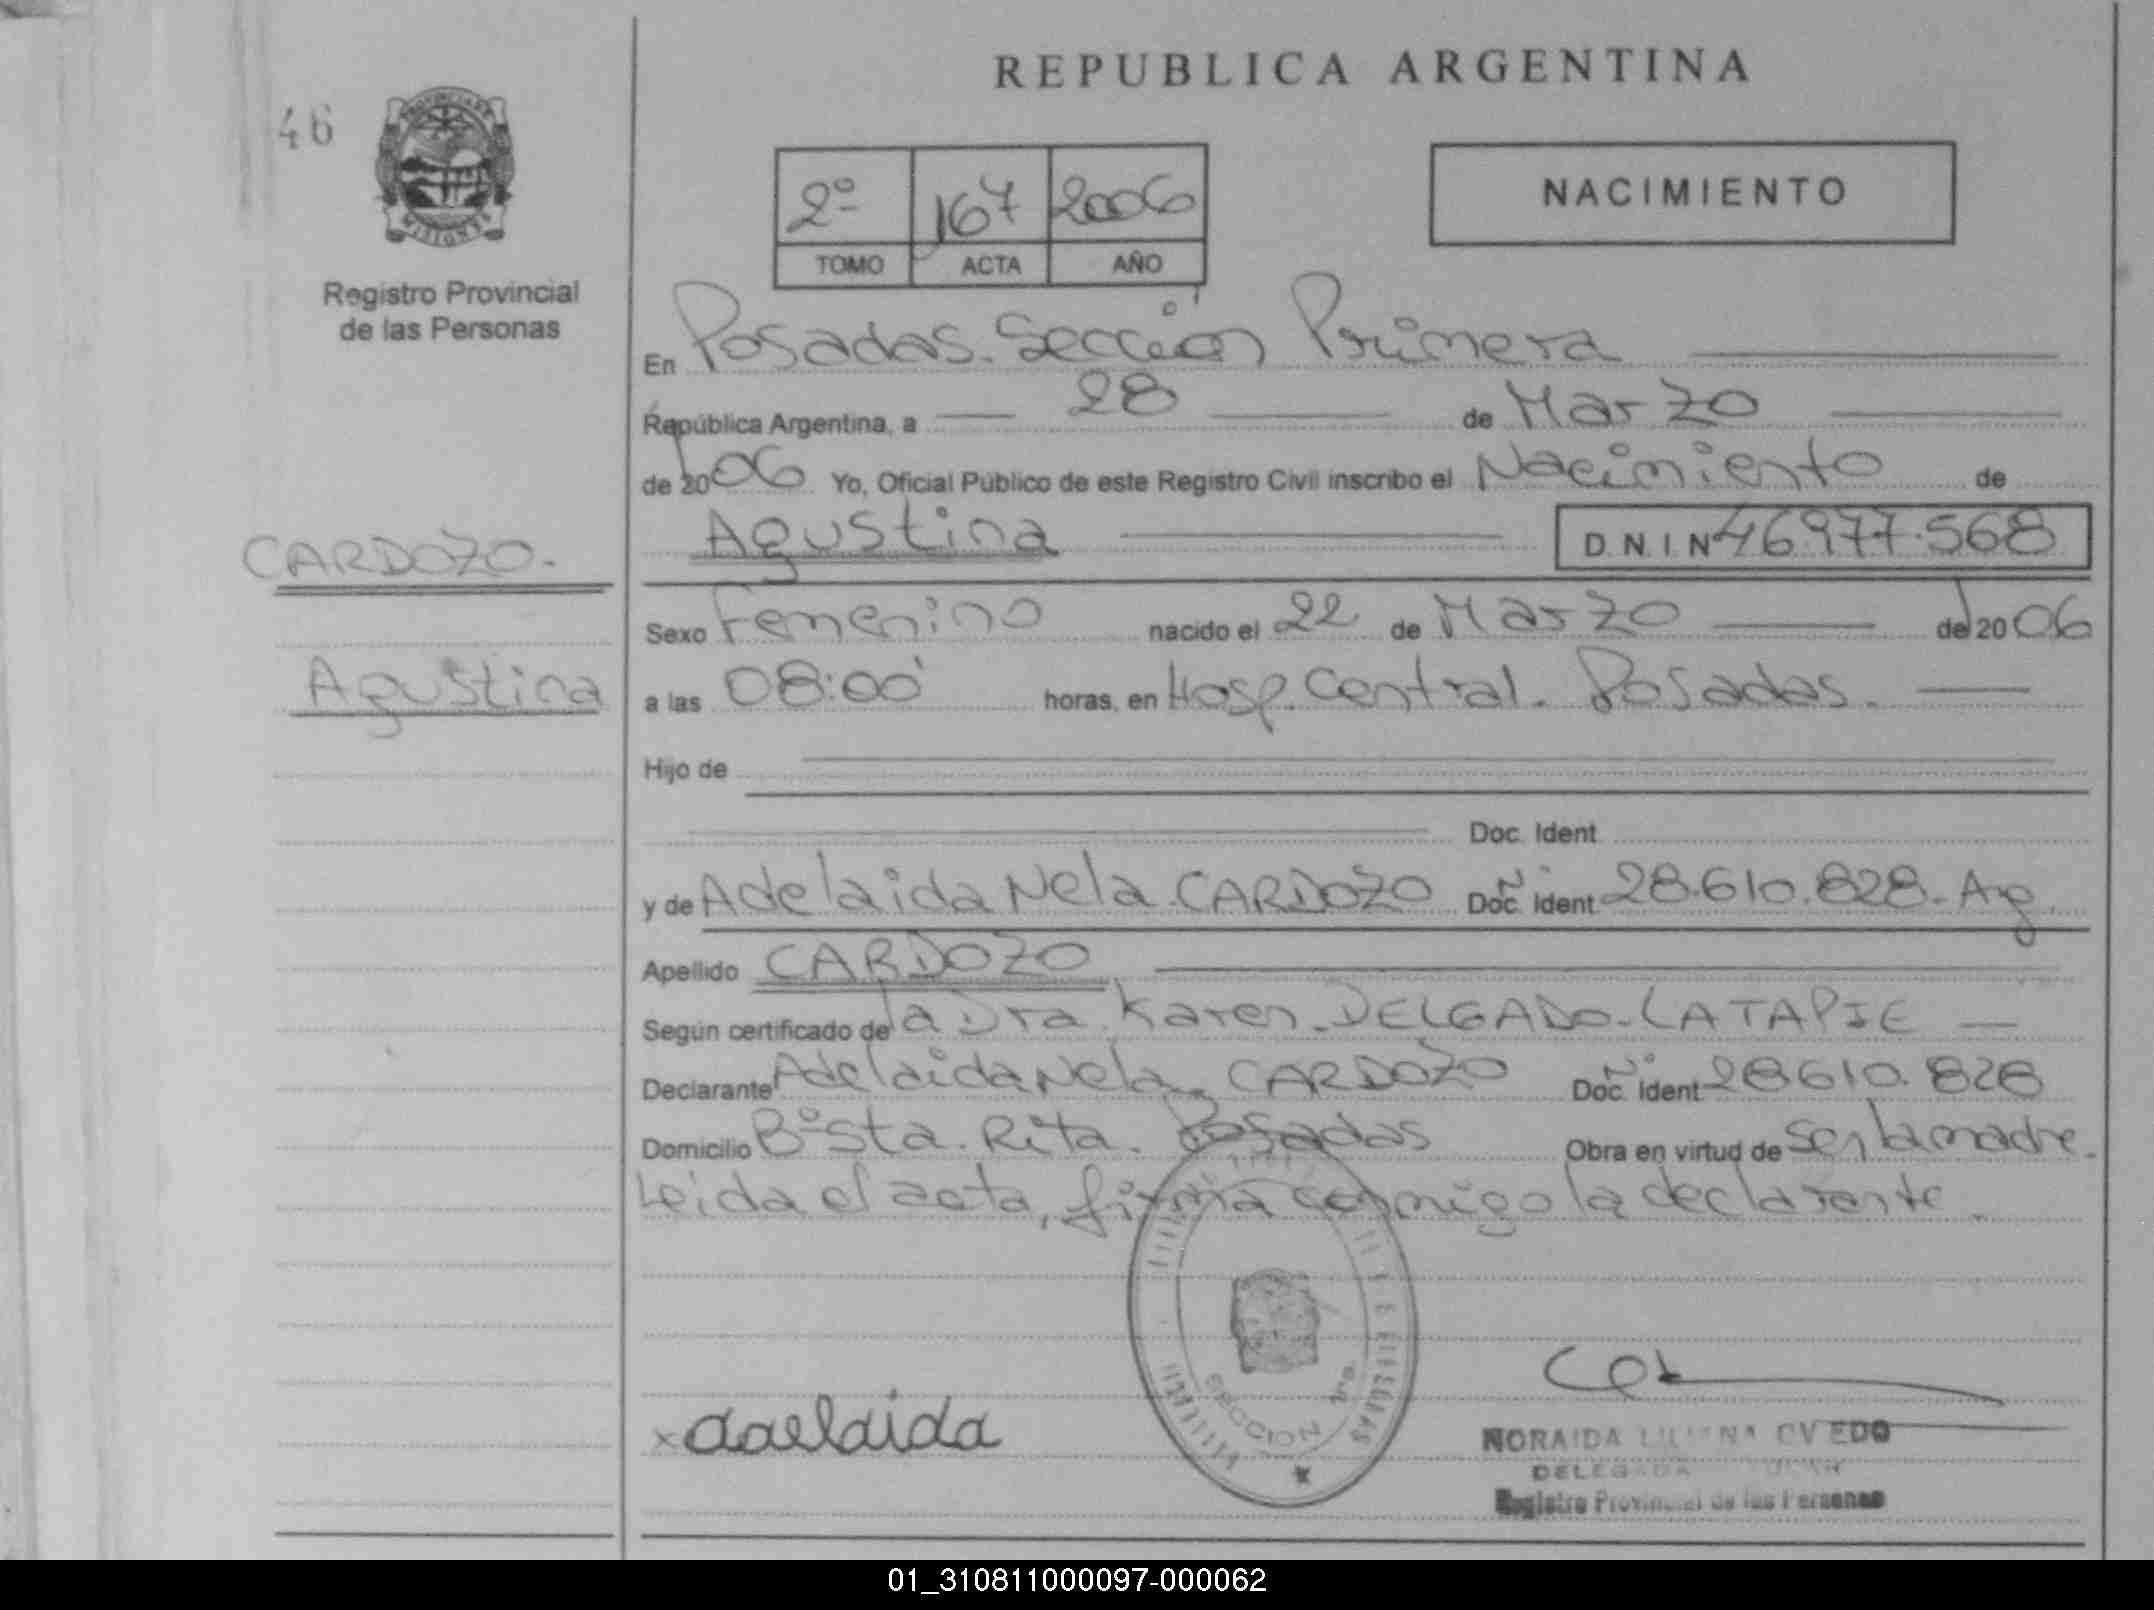 REPUBLICA ARGENTINA
46
PROVINCIA DE
MISIONES
Registro Provincial
de las Personas
2º 167 2006
TOMO ACTA AÑO
NACIMIENTO
En Posadas. Sección Primera
República Argentina, a 28 de Marzo
de 2006 Yo, Oficial Público de este Registro Civil inscribo el Nacimiento de
Agustina D.N.I. Nº 46.977.568
CARDOZO.
Agustina
Sexo Femenino nacido el 22 de Marzo de 2006
a las 08:00 horas, en Hosp. Central. Posadas.
Hijo de
Doc. Ident.
y de Adelaida Nela. CARDOZO Doc. Ident. Nº 28.610.828-Arg.
Apellido CARDOZO
Según certificado de la Dra. Karen. DELGADO-LATAPIE
Declarante Adelaida Nela. CARDOZO Doc. Ident. Nº 28610.828
Domicilio Bº Sta. Rita. Posadas Obra en virtud de ser la madre.
Leida el acta, firma conmigo la declarante.
x adelaida
SECCION 1ra
NORAIDA LILIANA OVIEDO
DELEGADA
Registro Provincial de las Personas
01_310811000097-000062